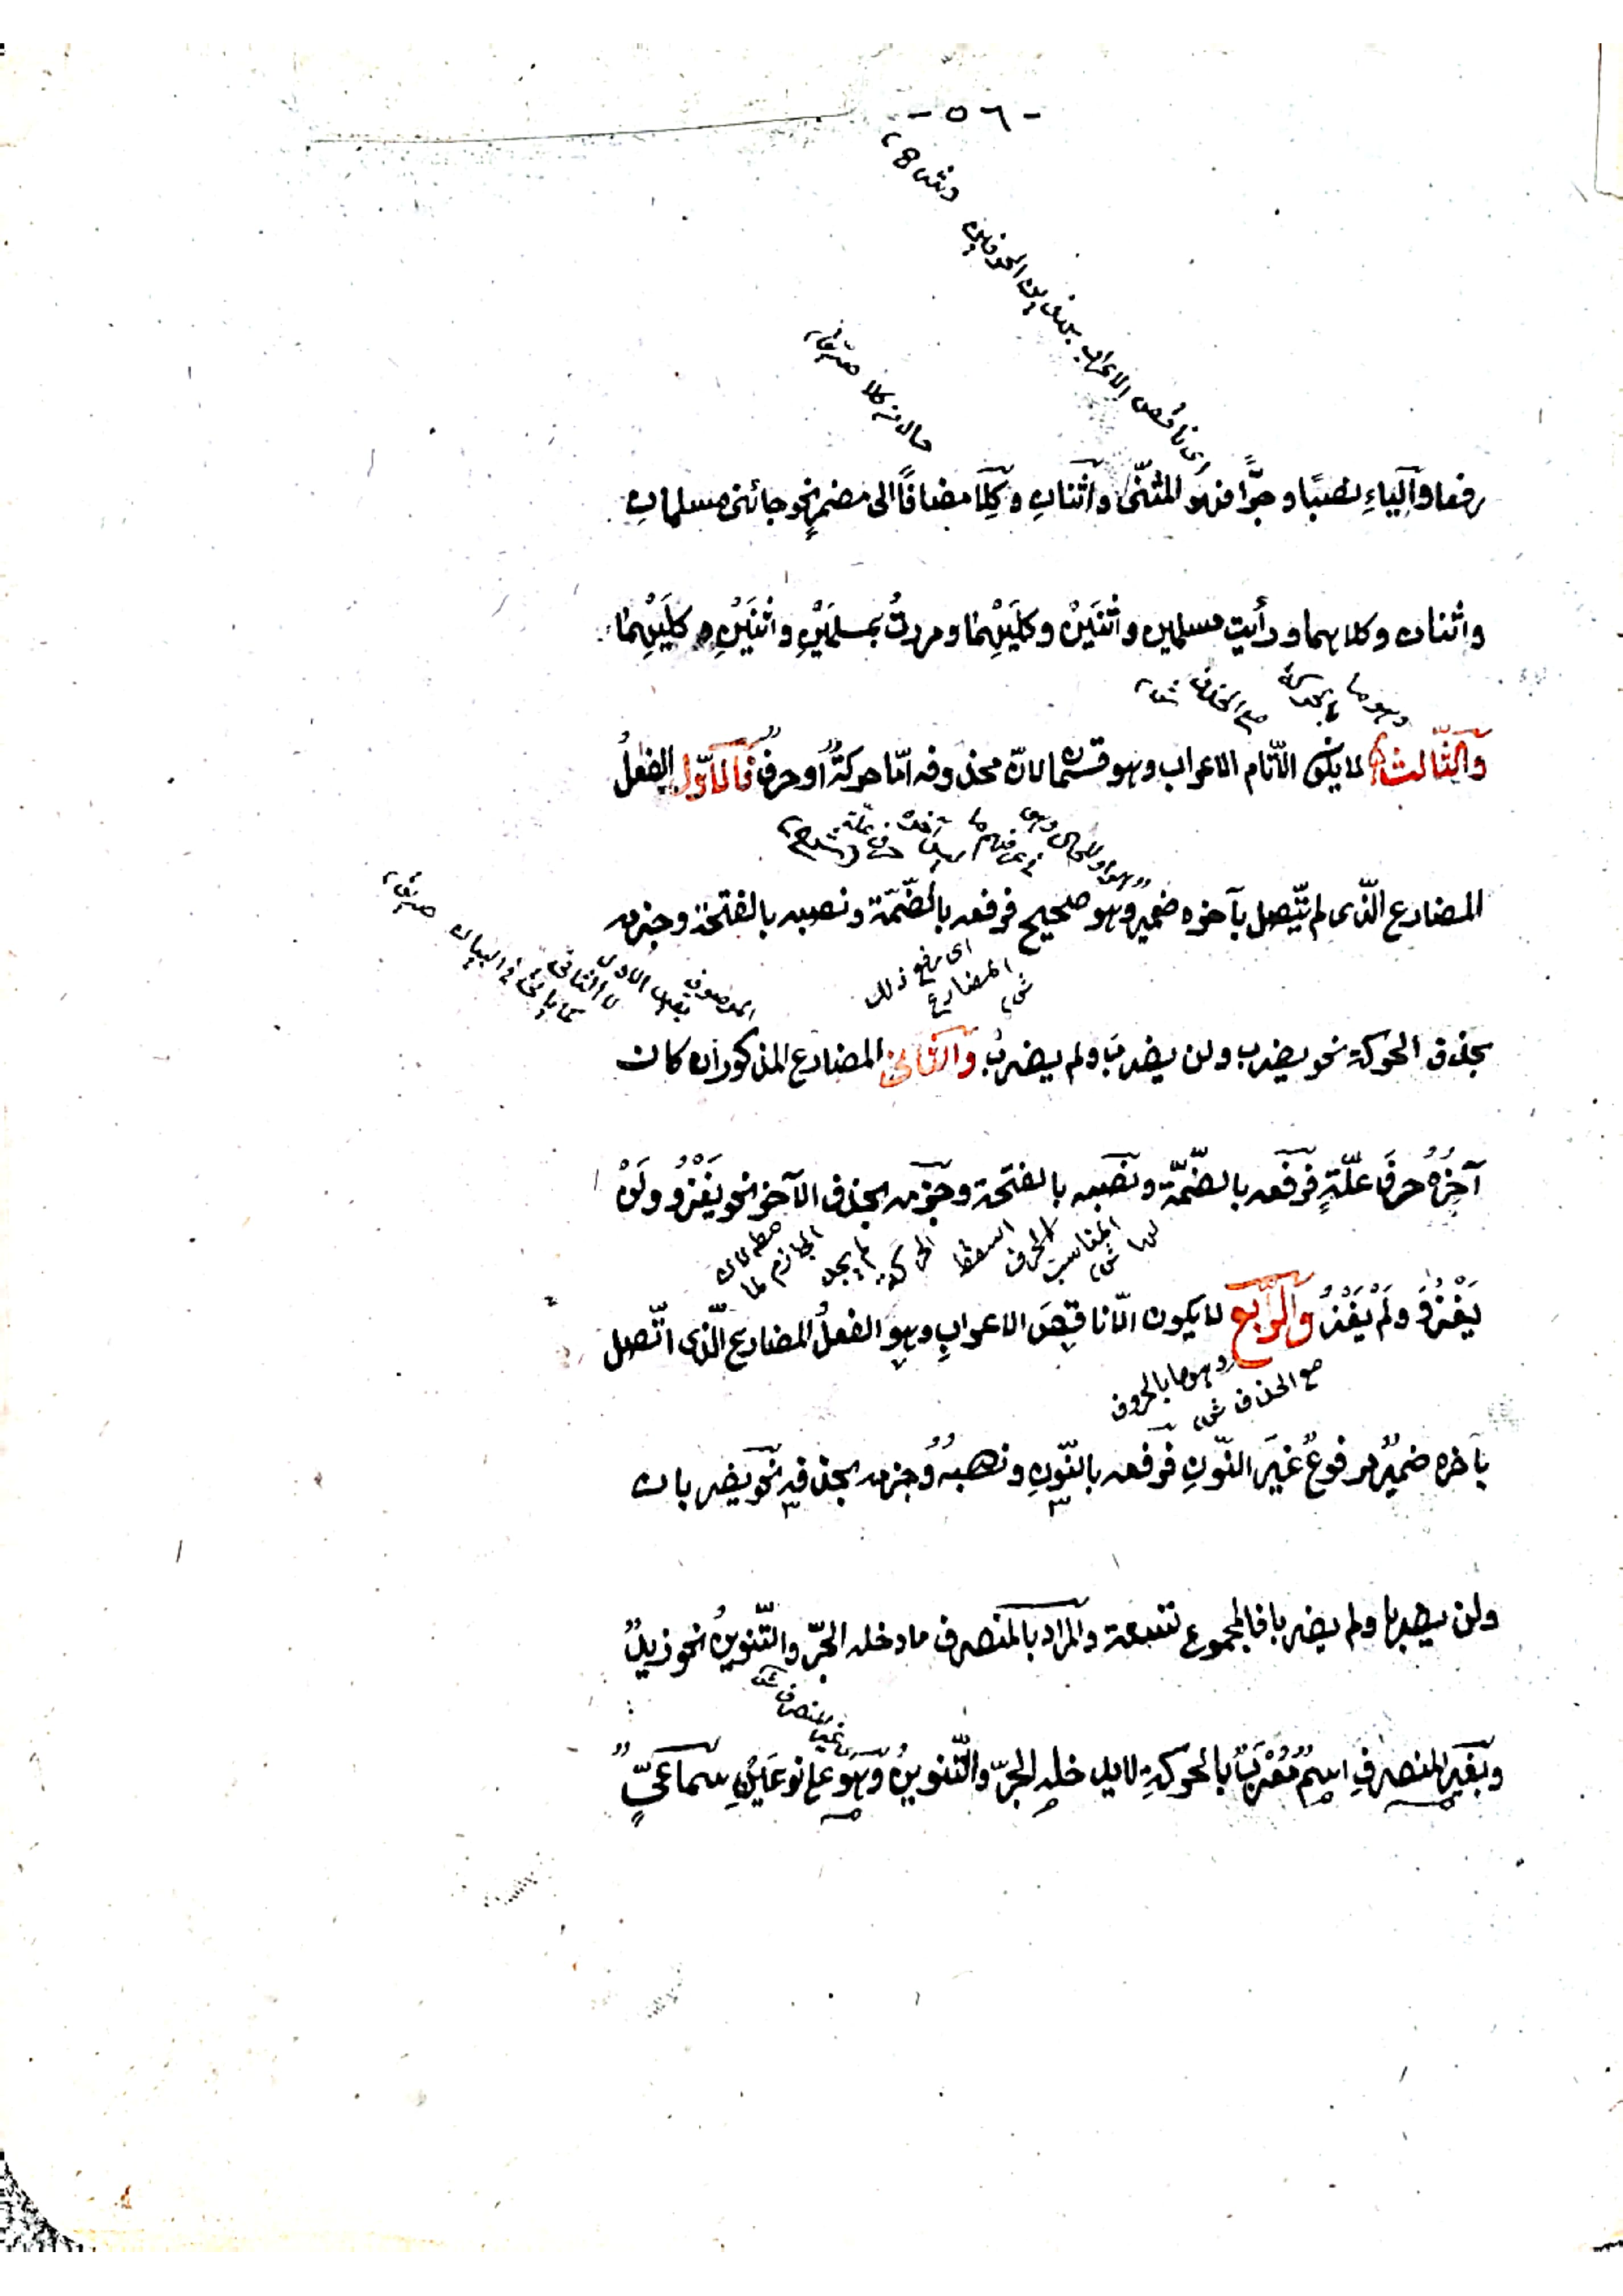 -٥٦-
اى ناقص الاعراب
حال من كلا
رفعا والياءِ نصبًا وجرًّا فهو المثنّى واثنانِ وكِلَا مضافًا الى مضمرٍ نحو جائنى مسلمانِ
واثنان وكلاهما ورأيت مسلمين واثْنَيْن وكِلَيْهِمَا ومررتُ بمسلمَيْنِ واثنَيْنِ وكِلَيْهِمَا
وهو ما بالحركة مع الحذف
والثّالث لا يكون الّا تام الاعراب وهو قسمان لانّ محذوفه امّا حركةٌ او حرفٌ فَالاَوّل الفعلُ
المضارع الّذى لم يتّصل بآخره ضمير وهو صحيح فرفعه بالضّمّة ونصبه بالفتحة وجزمه
اى رفع ذلك المضارع
بحذف الحركة نحو يضرب ولن يضربَ ولم يضربْ وَالثّانى المضارع المذكور ان كان
آخِرُهُ حرفَ علّةٍ فرفعه بالضّمّة ونصبه بالفتحة وجزمه بحذف الآخر نحو يَغْزُو ولَنْ
يَغْزُوَ ولَمْ يَغْزُ والرّابع لا يكون الّا ناقِصَ الاعرابِ وهو الفعلُ المضارع الّذى اتّصل
وهو ما بالحروف
مع الحذف
بآخره ضميرٌ مرفوعٌ غيرَ النّونِ فرفعه بالنّونِ ونصبهُ وجزمه بحذفِهِ نحو يضربان
ولن يضربا ولم يضربا فالمجموع تسعة والمراد بالمنصرف ما دخله الجرّ والتّنوينُ نحو زيدٌ
وبغيرِ المنصرفِ اسمٌ مُعْرَبٌ بالحركةِ لا يدخله الجرّ والتّنوينُ وهو على نوعَيْنِ سماعىٌّ